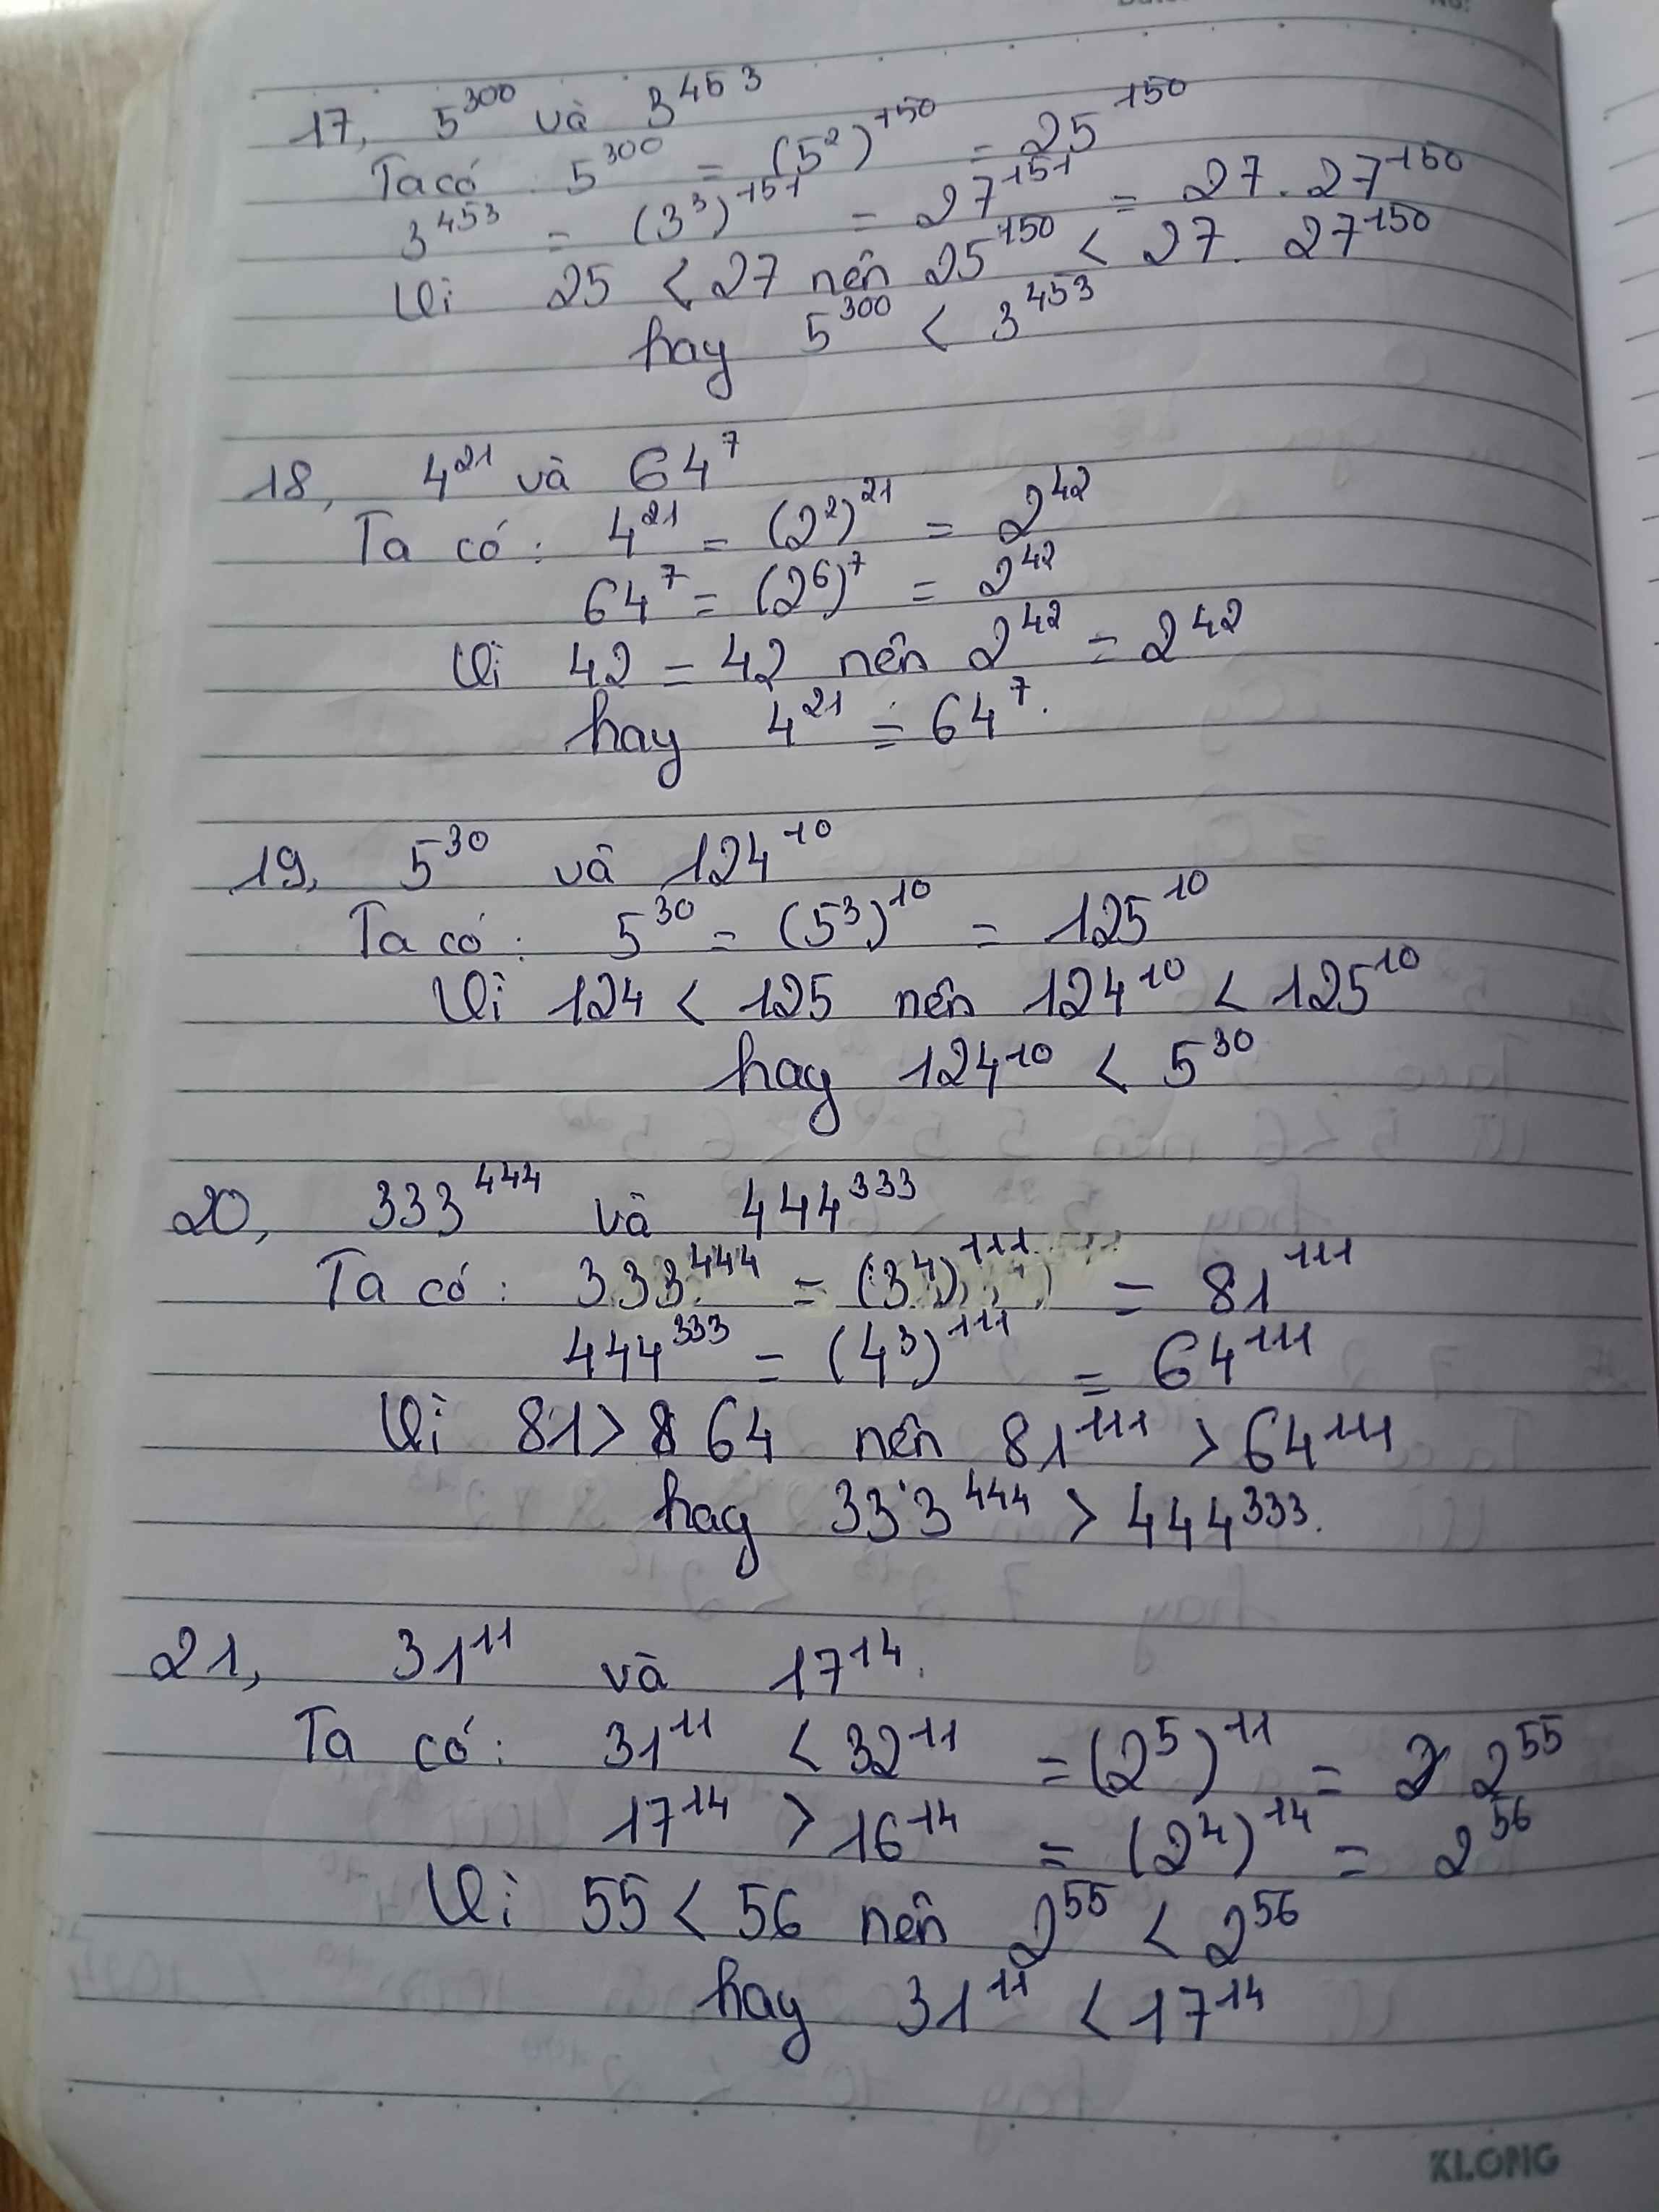 17, 5³⁰⁰ và 3⁴⁵³
Ta có : 5³⁰⁰ = (5²)¹⁵⁰ = 25¹⁵⁰
3⁴⁵³ = (3³)¹⁵¹ = 27¹⁵¹ = 27. 27¹⁵⁰
Vì 25 < 27 nên 25¹⁵⁰ < 27. 27¹⁵⁰
hay 5³⁰⁰ < 3⁴⁵³
18, 4²¹ và 64⁷
Ta có : 4²¹ = (2²)²¹ = 2⁴²
64⁷ = (2⁶)⁷ = 2⁴²
Vì 42 = 42 nên 2⁴² = 2⁴²
hay 4²¹ = 64⁷.
19, 5³⁰ và 124¹⁰
Ta có : 5³⁰ = (5³)¹⁰ = 125¹⁰
Vì 124 < 125 nên 124¹⁰ < 125¹⁰
hay 124¹⁰ < 5³⁰
20, 333⁴⁴⁴ và 444³³³
Ta có : 333⁴⁴⁴ = (3⁴)¹¹¹ = 81¹¹¹
444³³³ = (4³)¹¹¹ = 64¹¹¹
Vì 81 > 64 nên 81¹¹¹ > 64¹¹¹
hay 333⁴⁴⁴ > 444³³³.
21, 31¹¹ và 17¹⁴.
Ta có : 31¹¹ < 32¹¹ = (2⁵)¹¹ = 2⁵⁵
17¹⁴ > 16¹⁴ = (2⁴)¹⁴ = 2⁵⁶
Vì 55 < 56 nên 2⁵⁵ < 2⁵⁶
hay 31¹¹ < 17¹⁴
KLONG